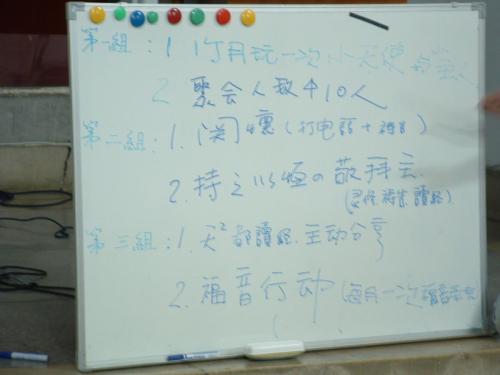 第一組：1. 1个月玩一次小天使与主人
2. 聚会人数中10人
第二組：1. 関懷（打电話+
2. 持之以恆の敬拜会
讀経）
第三組：1. 天²都讀経.主动分享
2. 福音行动（每月一次福音